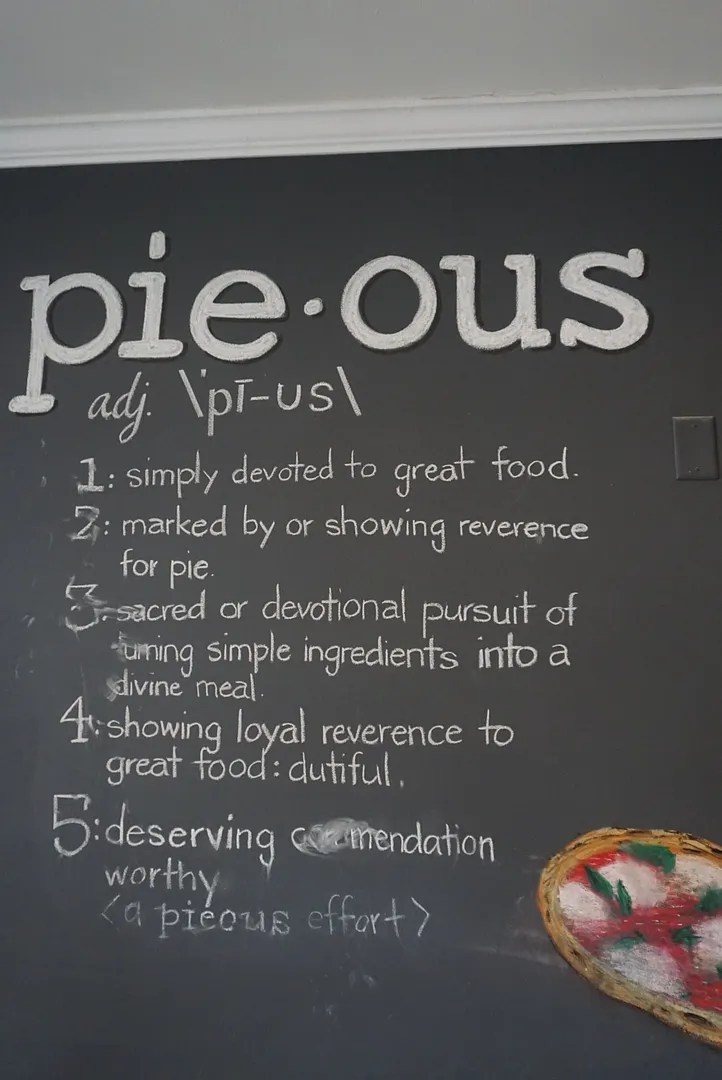 pie·ous
adj. \'pī-us\
1: simply devoted to great food.
2: marked by or showing reverence
for pie.
3: sacred or devotional pursuit of
turning simple ingredients into a
divine meal.
4: showing loyal reverence to
great food: dutiful.
5: deserving commendation
worthy
<a pieous effort>